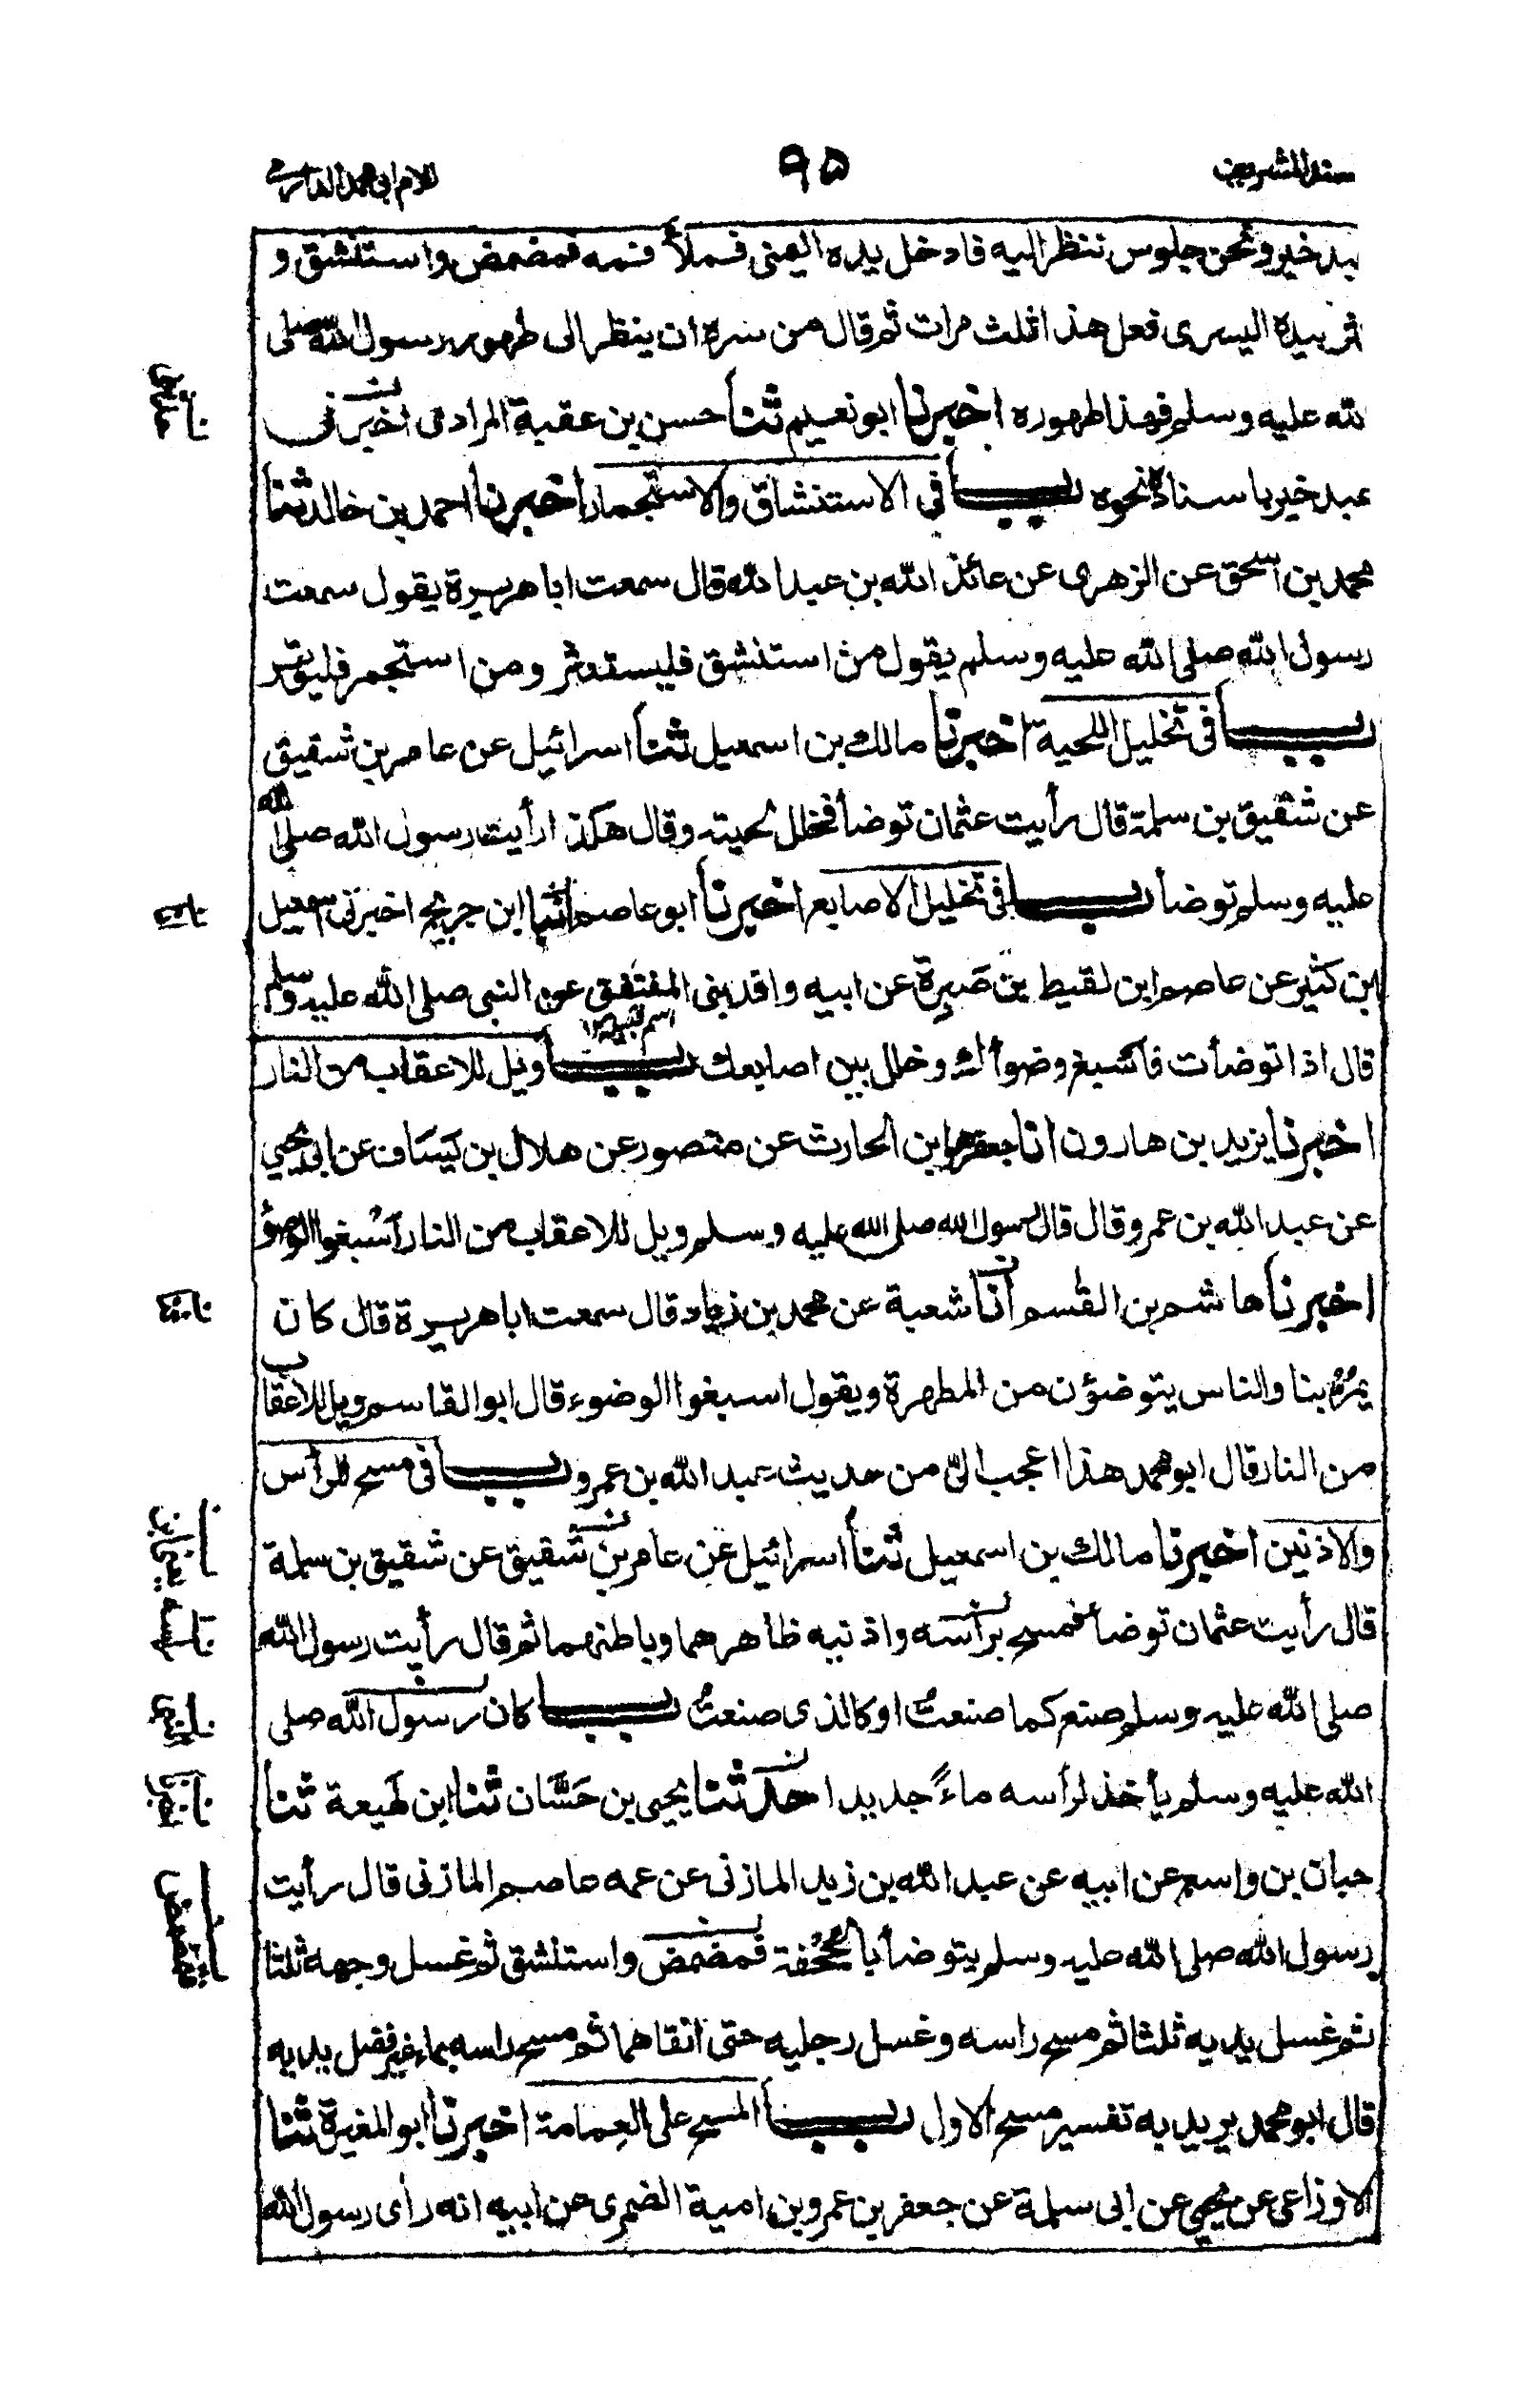 مسند الشريف ۹۵ للامام ابی محمد الدارمی
عبد خير ونحن جلوس ننظر اليه فادخل يده اليمنى فملأ فمه فمضمض واستنشق و
نثر بيده اليسرى فعل هذا ثلث مرات ثم قال من سره ان ينظر الى طهور رسول الله صلى
الله عليه وسلم فهذا طهوره اخبرنا ابو نعيم ثنا حسن بن عقبة المرادى اخبرنى
عبد خير باسناده نحوه باب في الاستنشاق والاستجمار اخبرنا احمد بن خالد ثنا
محمد بن اسحق عن الزهرى عن عائذ الله بن عبد الله قال سمعت ابا هريرة يقول سمعت
رسول الله صلى الله عليه وسلم يقول من استنشق فليستنثر ومن استجمر فليوتر
باب في تخليل اللحية اخبرنا مالك بن اسمعيل ثنا اسرائيل عن عامر بن شقيق
عن شقيق بن سلمة قال رأيت عثمان توضأ فخلل لحيته وقال هكذا رأيت رسول الله صلى الله
عليه وسلم توضأ باب في تخليل الاصابع اخبرنا ابو عاصم انبا ابن جريج اخبرنى اسمعيل
بن كثير عن عاصم ابن لقيط بن صَبِرة عن ابيه وافد بنى المنتفق عن النبى صلى الله عليه وسلم
اسم قبيلة ۱۲
قال اذا توضأت فأسبغ وضوأك وخلل بين اصابعك باب ويل للاعقاب من النار
اخبرنا يزيد بن هارون انا جعفر هو ابن الحارث عن منصور عن هلال بن يَسَاف عن ابى يحيى
عن عبد الله بن عمرو قال قال رسول الله صلى الله عليه وسلم ويل للاعقاب من النار أسْبغوا الوضوُ
اخبرنا هاشم بن القسم أنا شعبة عن محمد بن زياد قال سمعت ابا هريرة قال كان
يمرُّ بنا والناس يتوضؤن من المطهرة ويقول اسبغوا الوضوء قال ابو القاسم ويل للاعقاب
من النار قال ابو محمد هذا اعجب الىّ من حديث عبد الله بن عمرو باب فى مسح الرأس
والاذنين اخبرنا مالك بن اسمعيل ثنا اسرائيل عن عامر بن شقيق عن شقيق بن سلمة
قال رأيت عثمان توضأ فمسح برأسه واذنيه ظاهرهما وباطنهما ثم قال رأيت رسول الله
صلى الله عليه وسلم صنع كما صنعتُ او كالذى صنعتُ باب كان رسول الله صلى
الله عليه وسلم يأخذ لرأسه ماءً جديدا حدثنا يحيى بن حَسَّان ثنا ابن لهيعة ثنا
حبان بن واسع عن ابيه عن عبد الله بن زيد المازنى عن عمه عاصم المازنى قال رأيت
رسول الله صلى الله عليه وسلم يتوضأ بالجُحْفة فمضمض واستنشق ثم غسل وجهه ثلثا
ثم غسل يديه ثلثا ثم مسح راسه وغسل رجليه حتى انقاهما ثم مسح راسه بماء غير فضل يديه
قال ابو محمد يريد به تفسير مسح الاول باب المسح على العمامة اخبرنا ابو المغيرة ثنا
الاوزاعى عن يحيى عن ابى سلمة عن جعفر بن عمرو بن امية الضمرى عن ابيه انه رأى رسول الله